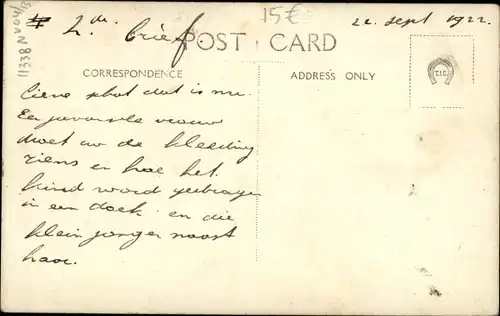 2de brief
15€
22 sept 1922.
POST CARD
CORRESPONDENCE
ADDRESS ONLY
T.I.C.
11338 NV04/13
lieve schat dat is nu
Een javaanse vrouw
moet uw de kleeding
ziens en hoe het
kind word gedragen
in een doek en die
klein jonger naast
haar.